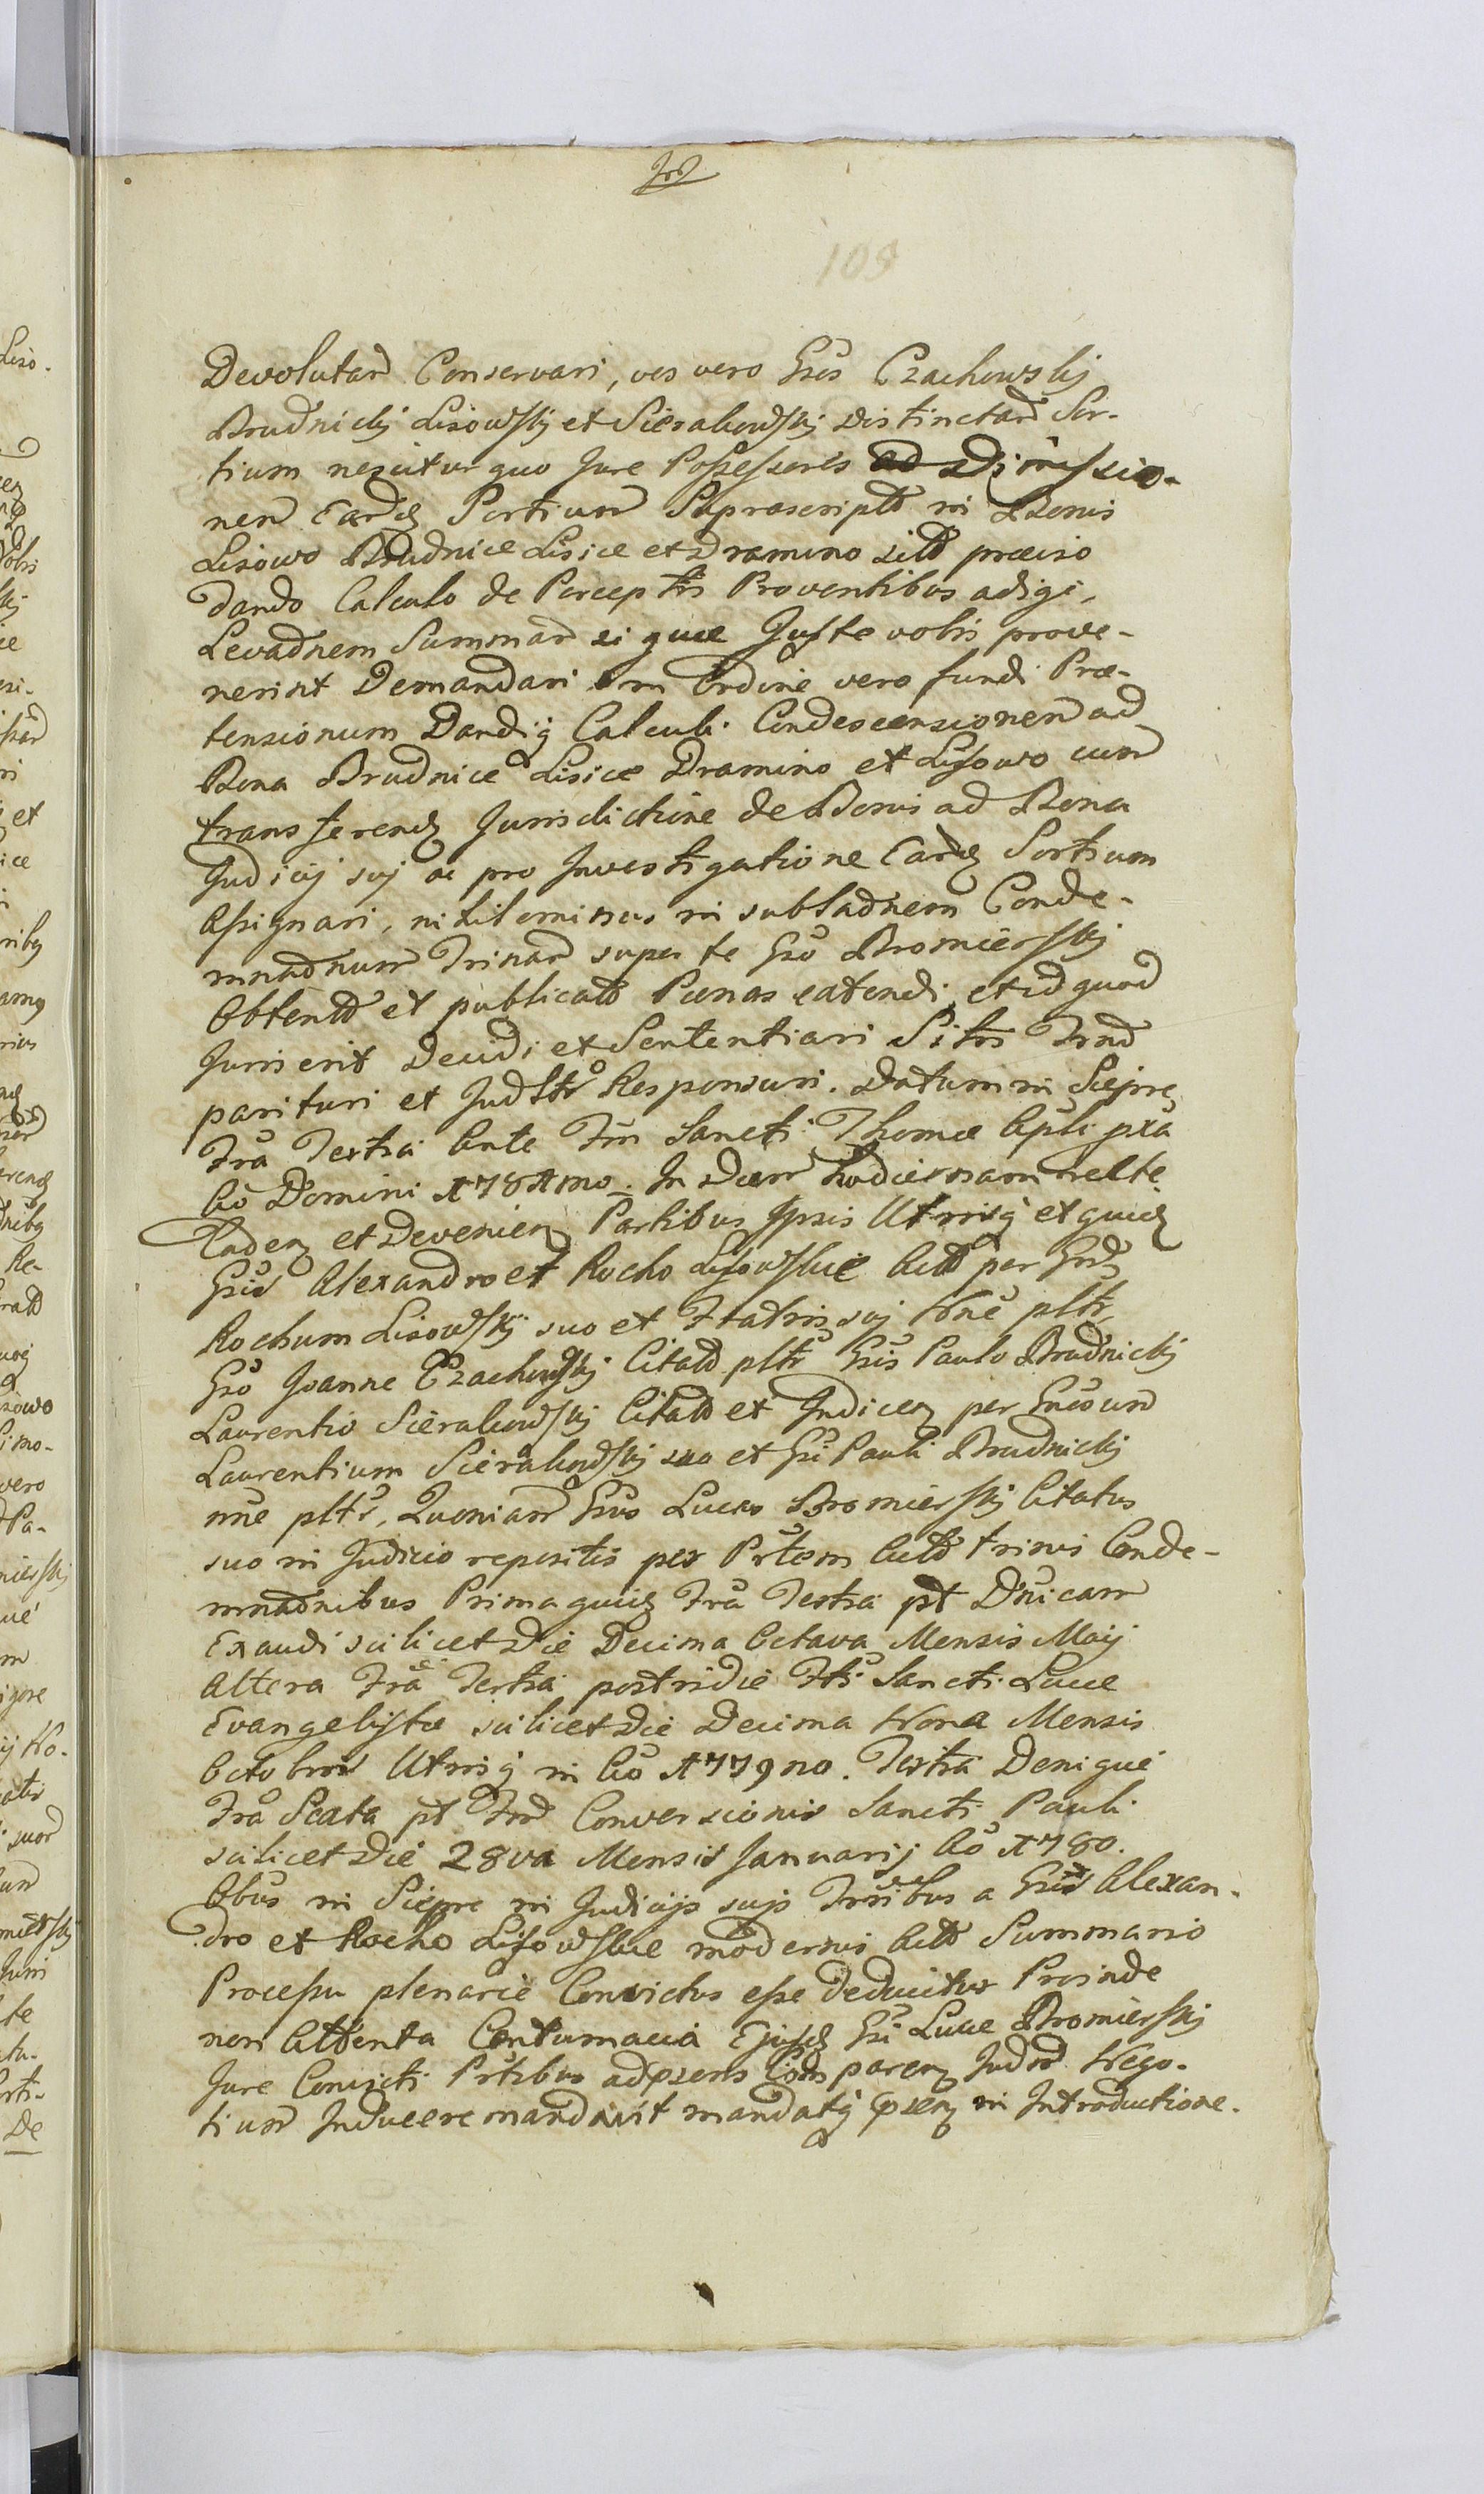 108
Devolutam Conservari, vos vero Gsos Czachowskj
Brudnickj Lisowskj et Sierakowskj Distinctam Sor-
tium nescitur quo Jure Possessores ad Dimissio-
nem Eard Sortium Suprascript in Bonis
Lisowo Brudnice Lisice et Dramino sitt præviso
dando Calculo de Perceptis Proventibus adigi,
Levaonem Summar si quæ Juste vobis prove-
nerint Demandari in Ordine vero fundi Præ-
tensionum Dandiq Calculi Condescensionem ad
Bona Brudnice Lisice Dramino et Lisowo cum
transferend Jurisdictione de Bonis ad Bona
Judicij suj ac pro Investigatione Eard Sortium
Assignari, nihilominus in sublaonem Conde-
mnaonum Trinar super te Gso Bromierskj
Obtent et publicat Pænas extendi, et id quod
Juris erit Decidi et Sententiari Sitis Trnd
parituri et Judltr Responsuri. Datum in Sieprc
Fra Tertia Ante Ftm Sancti Thomæ Apli pxa
Ao Domini 1781mo. In Diem hodiernam recte
Caden et Devenien Partibus Ipsis Utrisq et quid
Gsis Alexandro et Rocho Lisowskie Actt per Gsd
Rochum Lisowskj suo et Fratris suj Nne pltr,
Gso Joanne Czachowskj Citatt pltr Gsis Paulo Brudnickj
Laurentio Sierakowskj Citatt et Judicen per Gnosum
Laurentium Sierakowskj suo et Gsi Pauli Brudnickj
nne pltr, Quoniam Gsus Lucas Bromierskj Citatus
suo in Judicio repositis per Prtem Actt trinis Conde-
mnaonibus Prima quid Fra Tertia pt Dnicam
Exaudi scilicet Die Decima Octava Mensis Maij
Altera Fra Tertia postridie Fti Sancti Lucæ
Evangelistæ scilicet Die Decima Nona Mensis
Octobris Utrisq in Ao 1779no. Tertia Denique
Fra Sexta pt Ftm Conversionis Sancti Pauli
scilicet Die 28va Mensis Januarij Ao 1780.
Obus in Sieprc in Judicijs sujs Trribus a Gsis Alexan-
dro et Rocho Lisowskie modernis Actt Summario
Processu plenarie Convictus esse Deducitur Proinde
non Attenta Contumacia Ejusd Gsi Lucæ Bromierskj
Jure Convicti Prtibus ad præsens paren Judm Nego-
tium Inducere mandavit mandatq in Introductione.